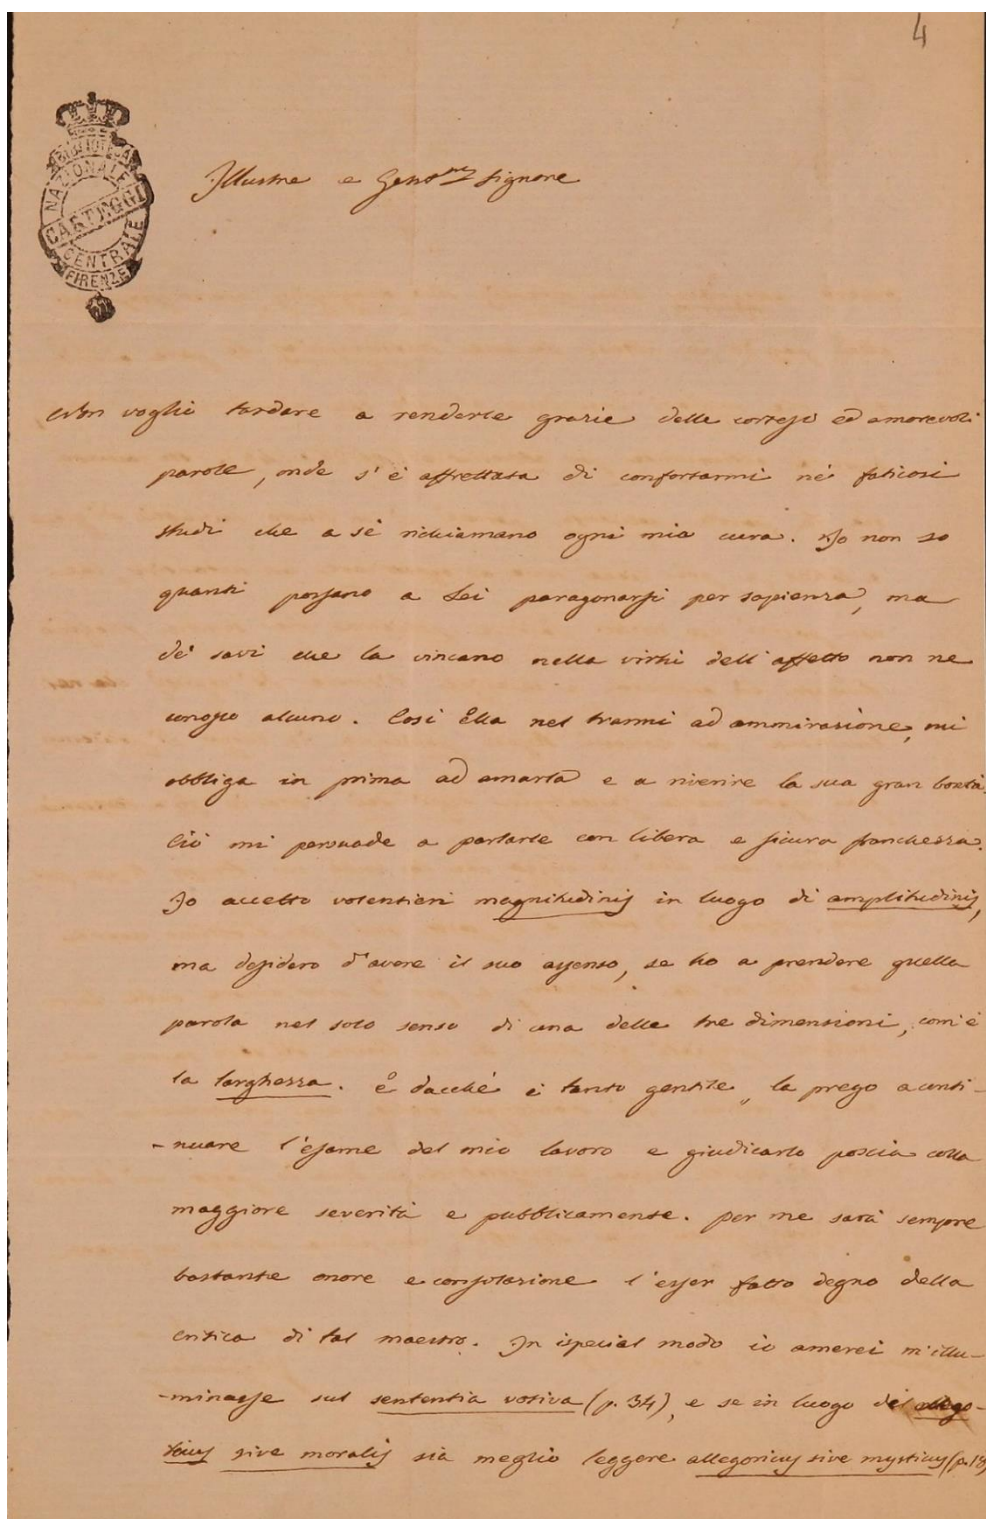 4
BIBLIOTECA
NAZIONALE
CARTEGGI
CENTRALE
FIRENZE
Illustre e Gent.mo Signore
Non voglio tardare a renderle grazie delle cortesi ed amorevoli
parole, onde s'è affrettata di confortarmi nè faticosi
studi che a sè richiamano ogni mia cura. Io non so
quanti possano a Lei paragonarsi per sapienza, ma
de' savi che la vincano nella virtù dell'affetto non ne
conosco alcuno. Così Ella nel trarmi ad ammirazione, mi
obbliga in prima ad amarla e a riverire la sua gran bontà.
Ciò mi persuade a parlarle con libera e sicura franchezza.
Io accetto volentieri magnitudinis in luogo di amplitudinis,
ma desidero d'avere il suo assenso, se ho a prendere quella
parola nel solo senso di una delle tre dimensioni, com'è
la larghezza. E dacchè è tanto gentile, la prego a conti-
-nuare l'esame del mio lavoro e giudicarlo poscia colla
maggiore severità e pubblicamente. Per me sarà sempre
bastante onore e consolazione l'esser fatto degno della
critica di tal maestro. In ispecial modo io amerei m'illu-
-minasse sul sententia votiva (p. 34), e se in luogo del allego-
ricus sive moralis sia meglio leggere allegoricus sive mysticus (p. 18)